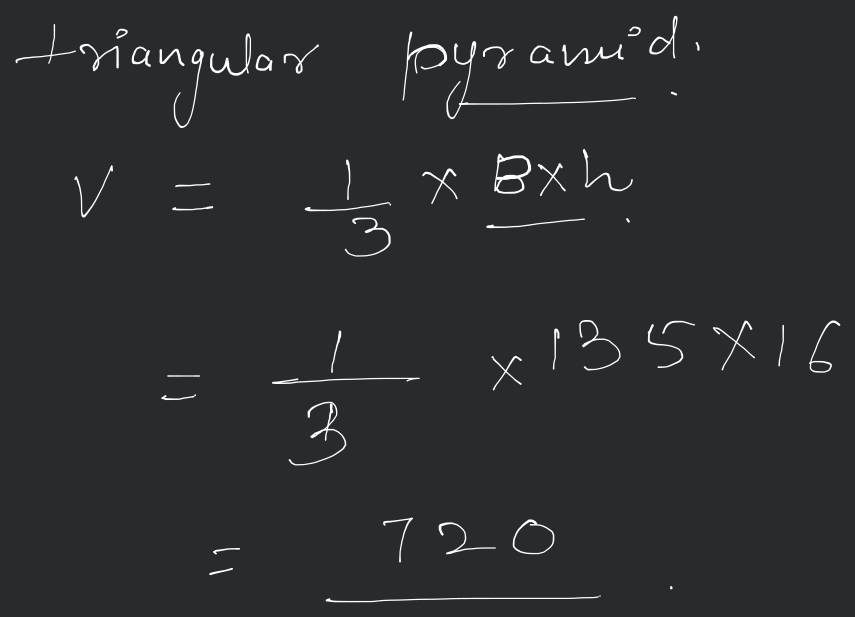 triangular pyramid.
V = 1/3 × B×h.
= 1/3 × 135×16
= 720.